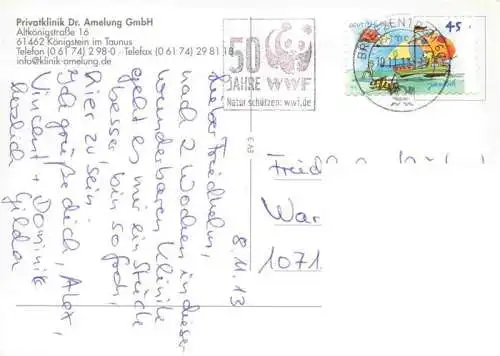 Privatklinik Dr. Amelung GmbH
Altkönigstraße 16
61462 Königstein im Taunus
Telefon (0 61 74) 2 98-0 - Telefax (0 61 74) 29 81 18
info@klinik-amelung.de
50
JAHRE WWF
Natur schützen: wwf.de
45
8.11.13
Lieber Friedhelm,
nach 2 Wochen in dieser
wunderbaren Klinik
geht es mir ein Stück
besser, bin so froh,
hier zu sein.
Ich grüße dich, Alex,
Vincent + Dominik
herzlich Gilda
Fried
War
1071